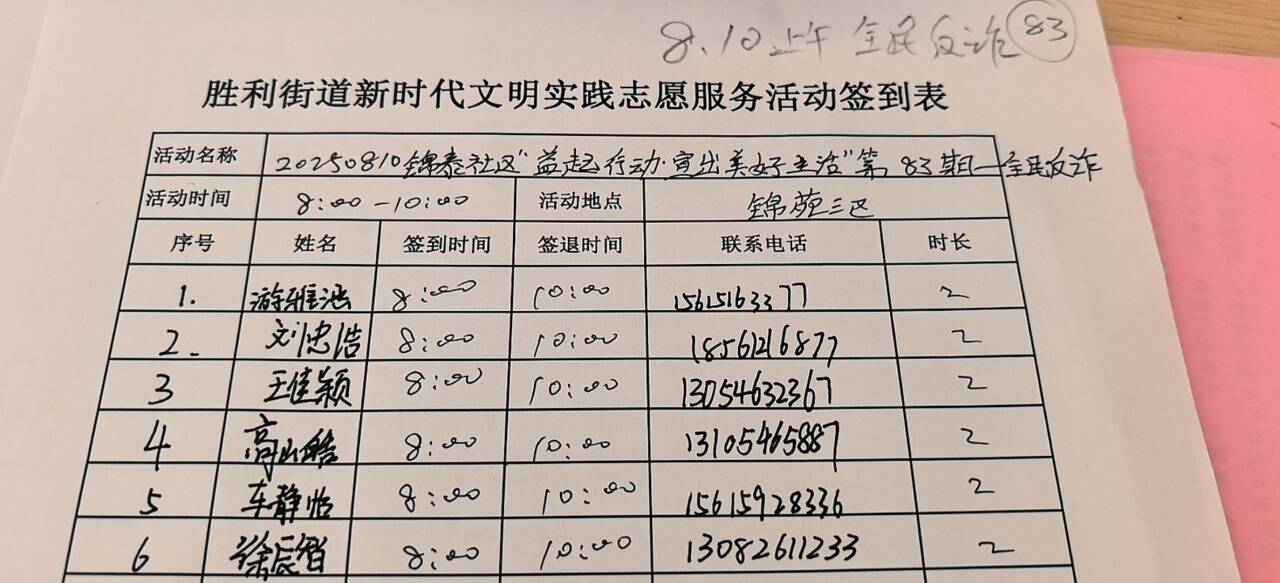 8.10上午 全民反诈 83
胜利街道新时代文明实践志愿服务活动签到表
活动名称 20250810锦泰社区"益起行动·宣出美好生活"第83期—全民反诈
活动时间 8:00-10:00 活动地点 锦苑三区
序号 姓名 签到时间 签退时间 联系电话 时长
1. 游雅涵 8:00 10:00 15615163377 2
2. 刘忠浩 8:00 10:00 18561216877 2
3 王佳颖 8:00 10:00 13054632367 2
4 高山皓 8:00 10:00 13105465887 2
5 车静怡 8:00 10:00 15615928336 2
6 徐辰智 8:00 10:00 13082611233 2